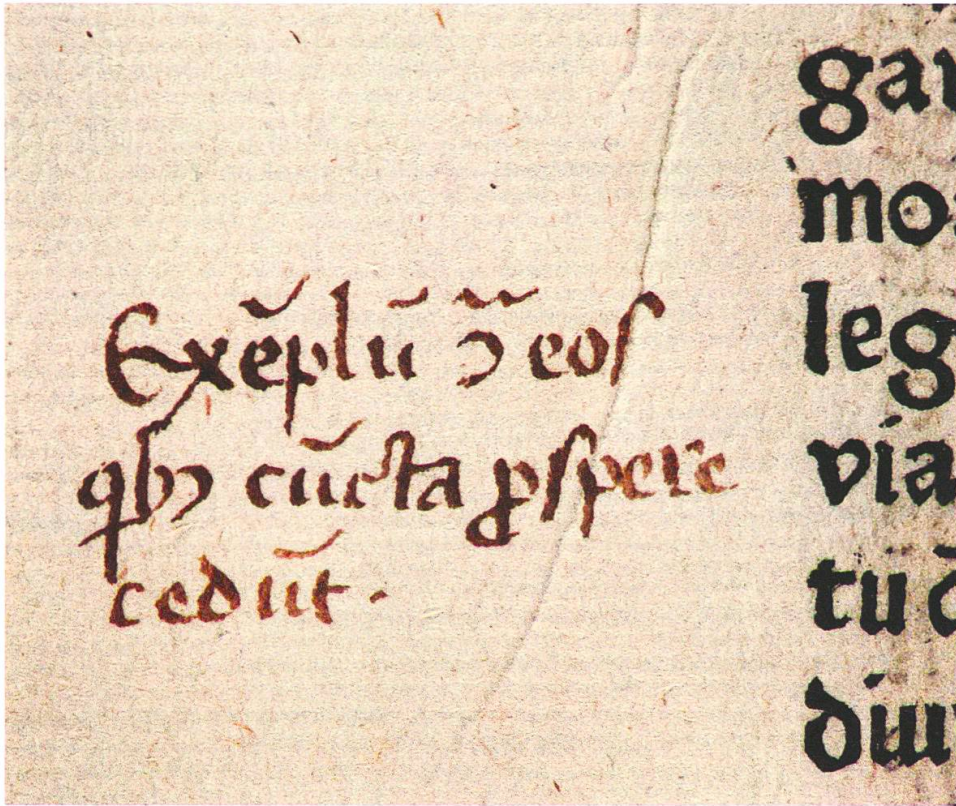 Exẽplũ ↄ̃ eos
qbꝫ cũcta ꝓspere
cedũt.
gau
mo
leg
via
tu
diu